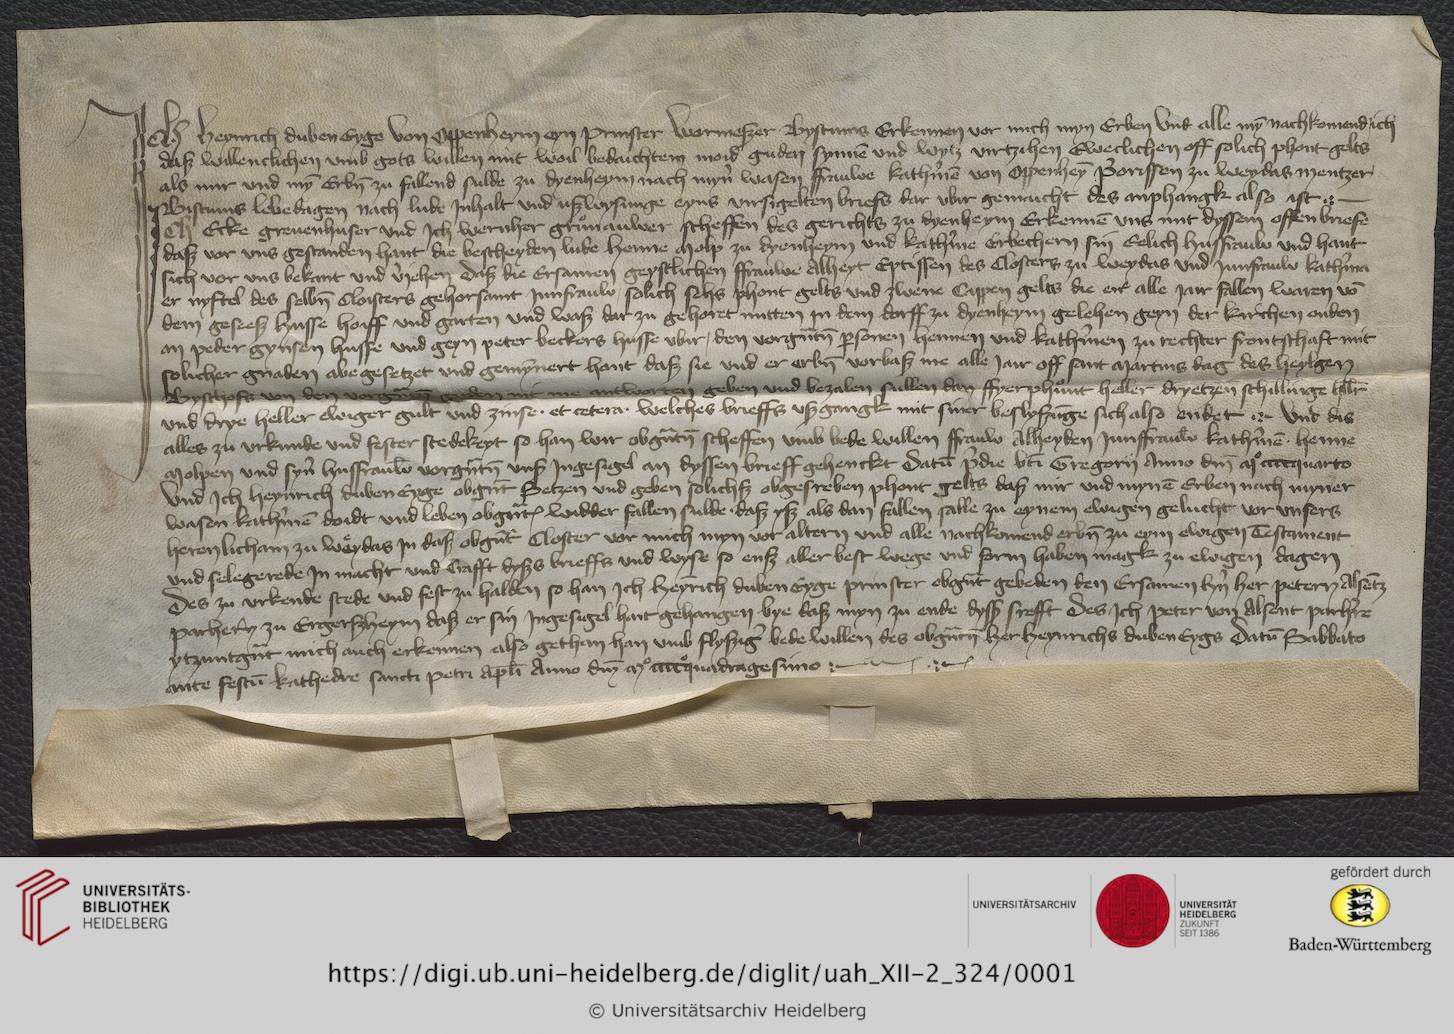 Ich Heynrich duben Eyge von Oppenheym eyn Prinster Wormeszer Bystums Erkennen vor mich myn Erben Und alle my nachkomend ich
dasz willenclichen umb gots willen mit woil bedaichtem moid guden synnē und wytz virtzihen Eweclichen off solich phont gelts
als mir und my Erbn zu fallend sulde zu dyenheym nach myn wasen ffrauwe kathrinē von Oppenhey Priorissen zu weydas mentzer
Bistums lebedagen nach lude Inhalt und uszwysunge eyns virsigelten briefs dar ubir gemacht des anphangk also ist
Ich Ecke grevenhuser und Ich wernher grunauwer scheffen des gerichts zu dyenheym Erkennē uns mit dyssem offen briefe
dasz vor uns gestanden hant die bescheyden lude Henne Molp zu dyenheym und kathrine Erbechern sin Eelich husfrauw und hant
sich vor uns bekant und dasz die Ersamen geystlichen ffrauwe Alheyt Eptissen des Closters zu weydas und Junfrauw kathrina
er nyftel des selbn Cloisters gehorsamt Junfrauw solich sehs phont gelts und zwene Cappen gelts die er alle Jar fallen waren vō
dem geseesz husse hoiff und garten und wasz dar zu gehoret mitten in dem dorff zu dyenheym gelehen geyn der kirchen onden
an peder gynsen husse und geyn peter beckers husse ubir den vorgntn psonen hennen und kathrinen zu rechter fruntschaft mit
solicher gnaden abe gesetzet und gemynert hant dasz sie und er erbn vorbasz me alle Jar off sant Martins dag des heylgen
Byschoffs von den geben und bezalen sullen dan ffyer phunt heller dryetzen schillinge hllr
und drye heller ewiger gult und zinse et cetera welches brieffs uszgangk mit siner beslyszunge sich also endet Und dis
alles zu urkunde und fester stedekeyt so han wir obgntn scheffen umb bede willen ffrauw Alheyden Junffrauw kathrinē henne
Molpen und syner husfrauw vorgntn unsz Ingesigel an dyssen brieff gehenckt Datū pdie bti Gregorii Anno dni Mº ccccquarto
Und Ich Heynrich duben Eyge obgnt Setzen und geben solichsz obgesreben phont gelts dasz mir und mynē Erben nach myner
wasen kathrinē doidt und leben obgnt widder fallen sulde dasz ysz als dan fallen salle zu eynem ewigen gelucht vor unsers
heren licham zu weydas in dasz obgnt Closter vor mich myn vor altern und alle nachkomend erbn zu eym ewigen Testament
und selegerede In macht und Crafft dysz brieffs und wyse so ensz aller best wege und form haben magk zu ewigen dagen
Des zu urkende stede und fest zu halden so han Ich Heynrich duben Eyge prinster obgnt gebeden den Ersamen hn her petern Alsentz
parhern zu Ergerszheym dasz er sin Ingesigel hait gehangen bye dasz myn zu ende dysz srefft Des Ich peter von Alsent
ytzuntgnt mich auch erkennen also gethan han umb flyszig bede willen des obgntn her heynrichs duben Eygs Datū Sabbato
ante festū kathedre sancti petri apli Anno dni Mº ccccºquadragesimo
UNIVERSITÄTS-
BIBLIOTHEK
HEIDELBERG
UNIVERSITÄTSARCHIV
UNIVERSITÄT
HEIDELBERG
ZUKUNFT
SEIT 1386
gefördert durch
Baden-Württemberg
https://digi.ub.uni-heidelberg.de/diglit/uah_XII-2_324/0001
© Universitätsarchiv Heidelberg